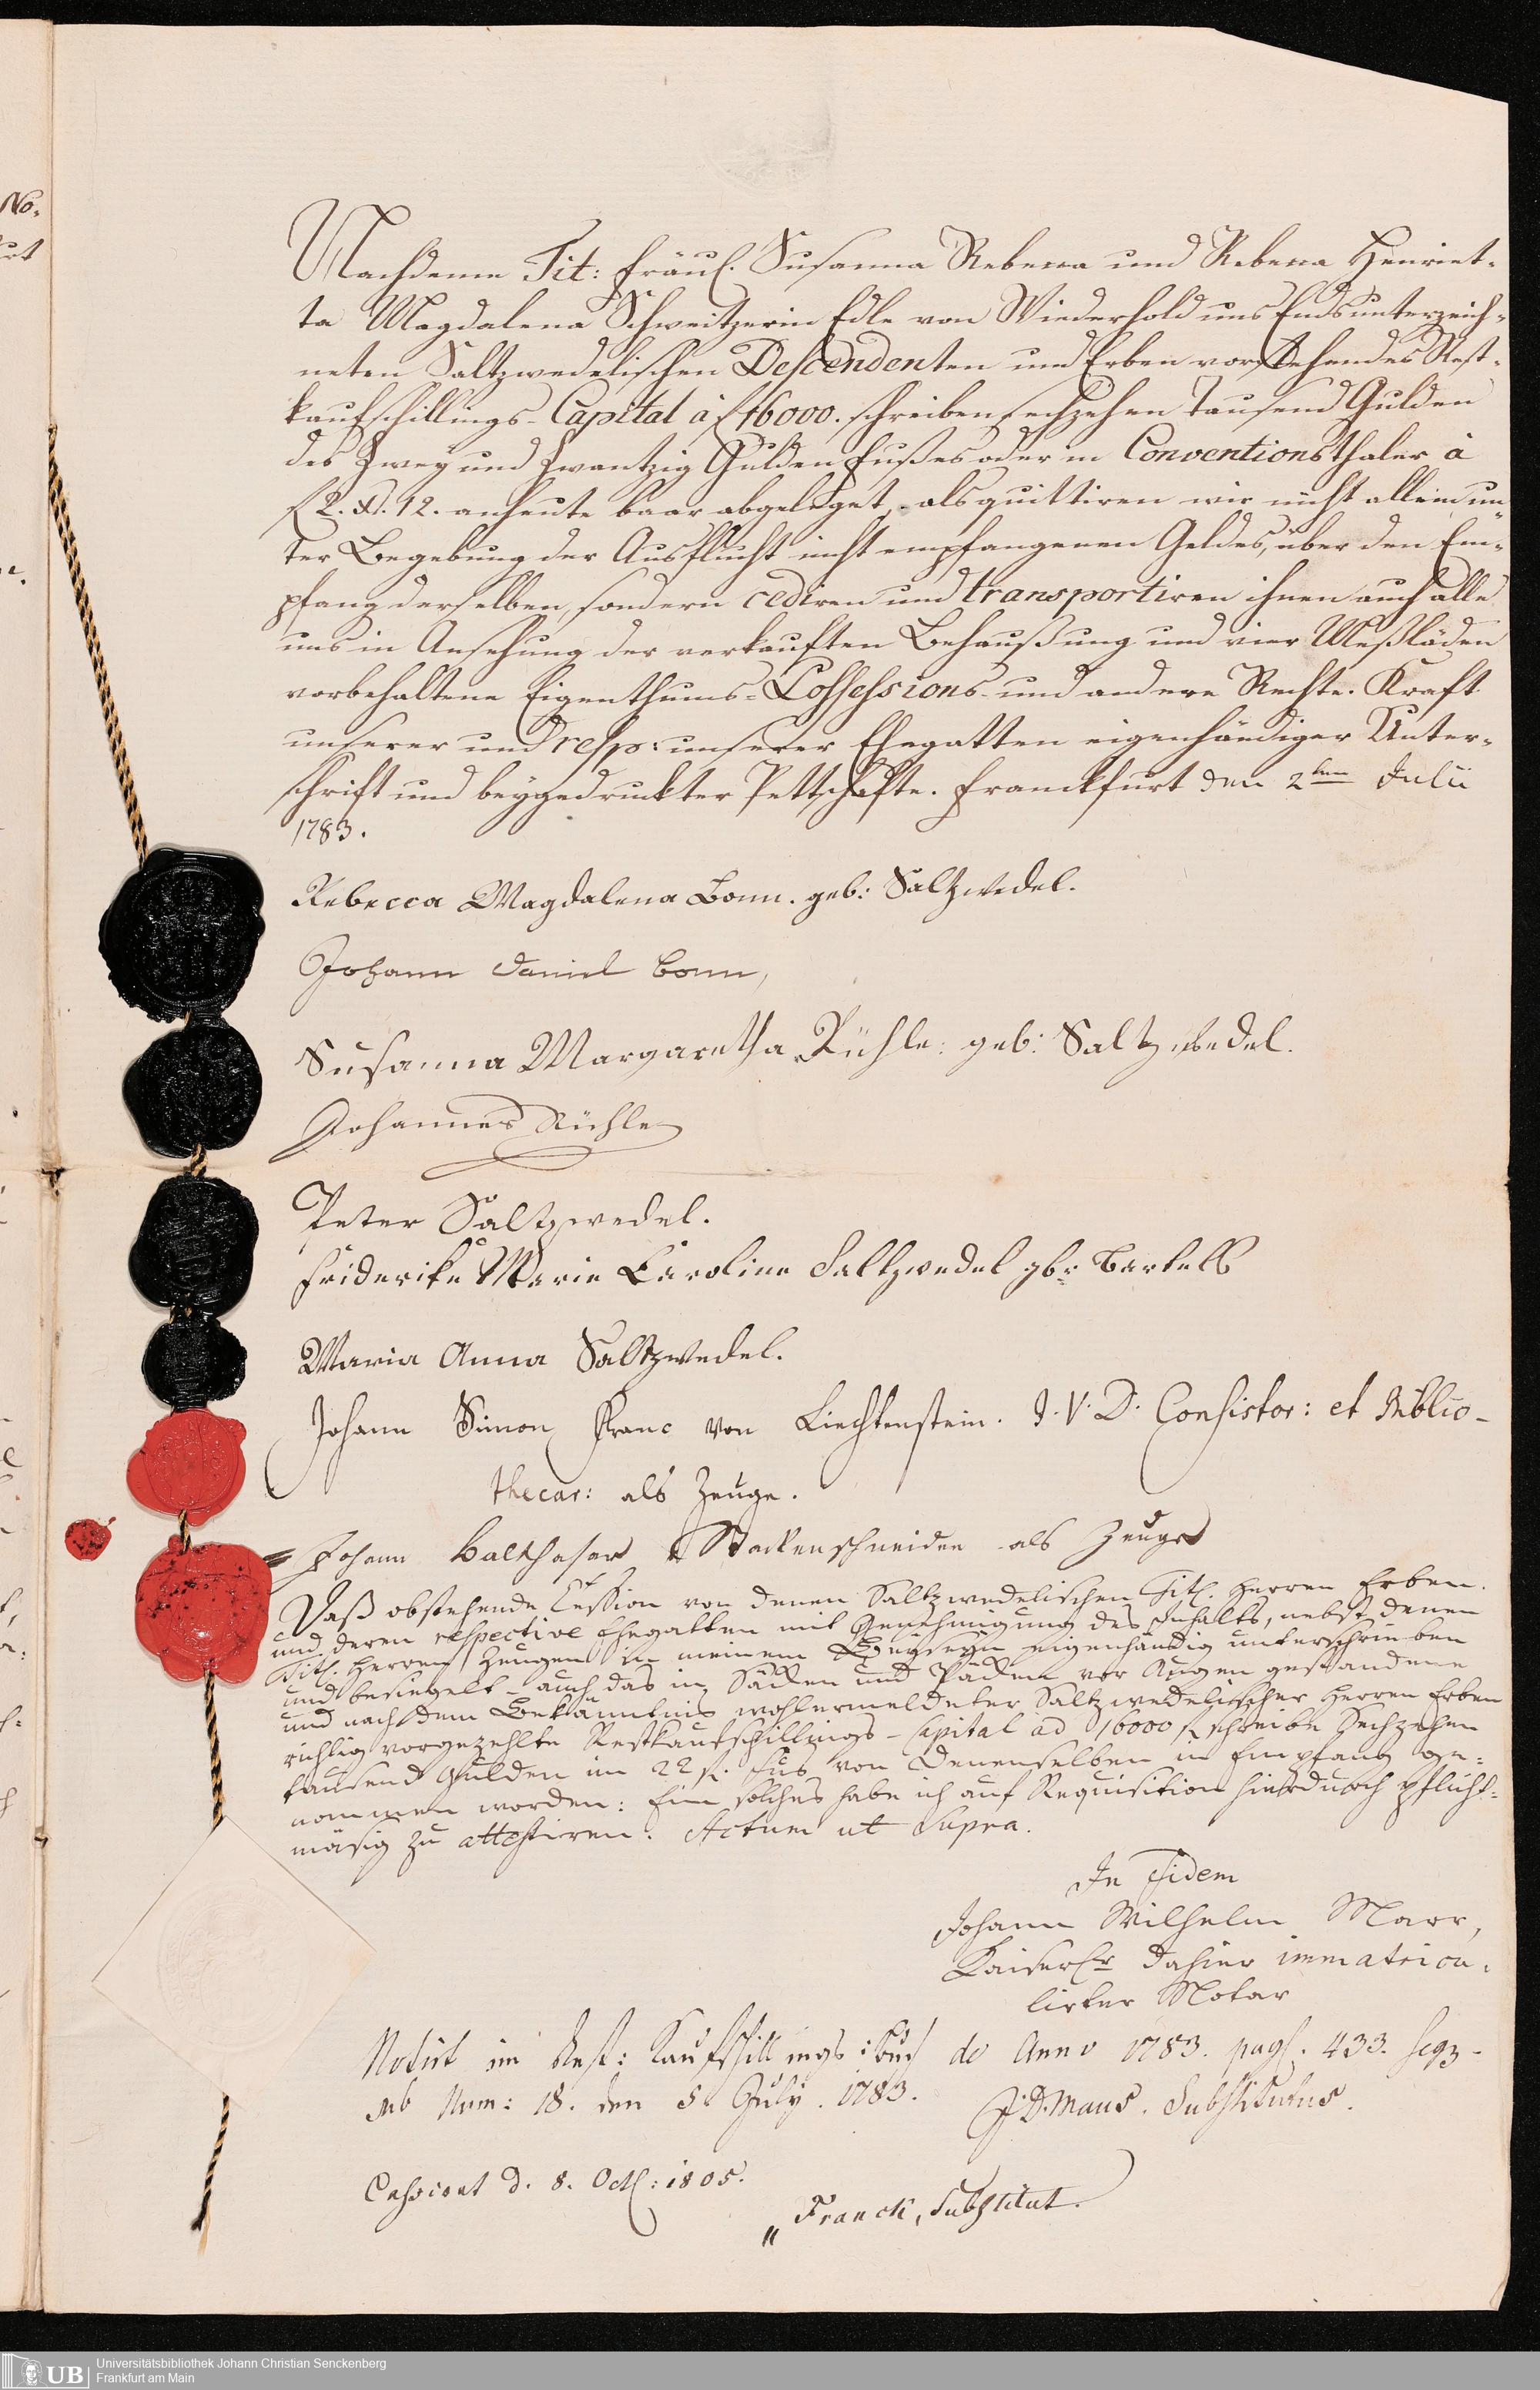 No.
Nachdeme Tit: Fräul. Susanna Rebecca und Rebecca Henriet-
ta Magdalena Schweitzerin Edle von Wiederhold uns Endsunterzeich-
neten Saltzwedelischen Descendenten und Erben vorstehendes Rest-
kaufschillings-Capital à f 16000. schreiben sechzehen Tausend Gulden
des Zwey und Zwantzig Gulden Fußes oder in Conventionsthaler à
f 2. x. 12. anheute baar abgeleget, als quittiren wir nicht allein un-
ter Begebung der Ausflucht nicht empfangenen Geldes, über den Em-
pfang derselben, sondern cediren und transportiren ihnen auch alle
uns in Ansehung der verkauften Behaußung und vier Meßläden
vorbehaltene Eigenthums- Possessions- und andere Rechte. Kraft
unserer und resp: unserer Ehegatten eigenhändiger Unter-
schrift und beygedruckter Pettschafte. Franckfurt den 2ten Julii
1783.
Rebecca Magdalena Bonn. geb: Saltzwedel.
Johann Daniel Bonn,
Susanna Margaretha Rühle: geb: Saltzwedel.
Johannes Rühle
Peter Saltzwedel.
Friderike Marie Caroline Saltzwedel gbr Bartels
Maria Anna Saltzwedel.
Johann Simon Franc von Liechtenstein. J. V. D. Consistor: et Biblio-
thecar: als Zeuge.
Johann Balthasar Stackenschneider als Zeuge
Daß obstehende Cession von denen Saltzwedelischen Titl. Herren Erben
und deren respective Ehegatten mit Genehmigung des Inhalts, nebst denen
Titl. Herren Zeugen in meinem Beyseyn eigenhändig unterschrieben
und besiegelt - auch das in Säcken und Päcken vor Augen gestandene
und nach dem Bekäntnis wohlermeldeter Saltzwedelischer Herren Erben
richtig vorgezehlte Restkaufschillings-Capital ad 16000 f. schreibe Sechzehen
tausend Gulden im 22 f. Fus von Denenselben in Empfang ge-
nommen worden: Ein solches habe ich auf Requisition hierdurch pflicht-
mäsig zu attestiren. Actum ut Supra.
In Fidem
Johann Wilhelm Marx,
Kaiserlr dahier immatricu-
lirter Notar
Notirt im Rest: Kaufschillings: Buch de Anno 1783. pag. 433. seqq
sub Num: 18. den 5. July. 1783. J. D. Maus. Substitutus.
Cassirt d. 8. Oct: 1805.
Franck, Substitut.
UB
Universitätsbibliothek Johann Christian Senckenberg
Frankfurt am Main